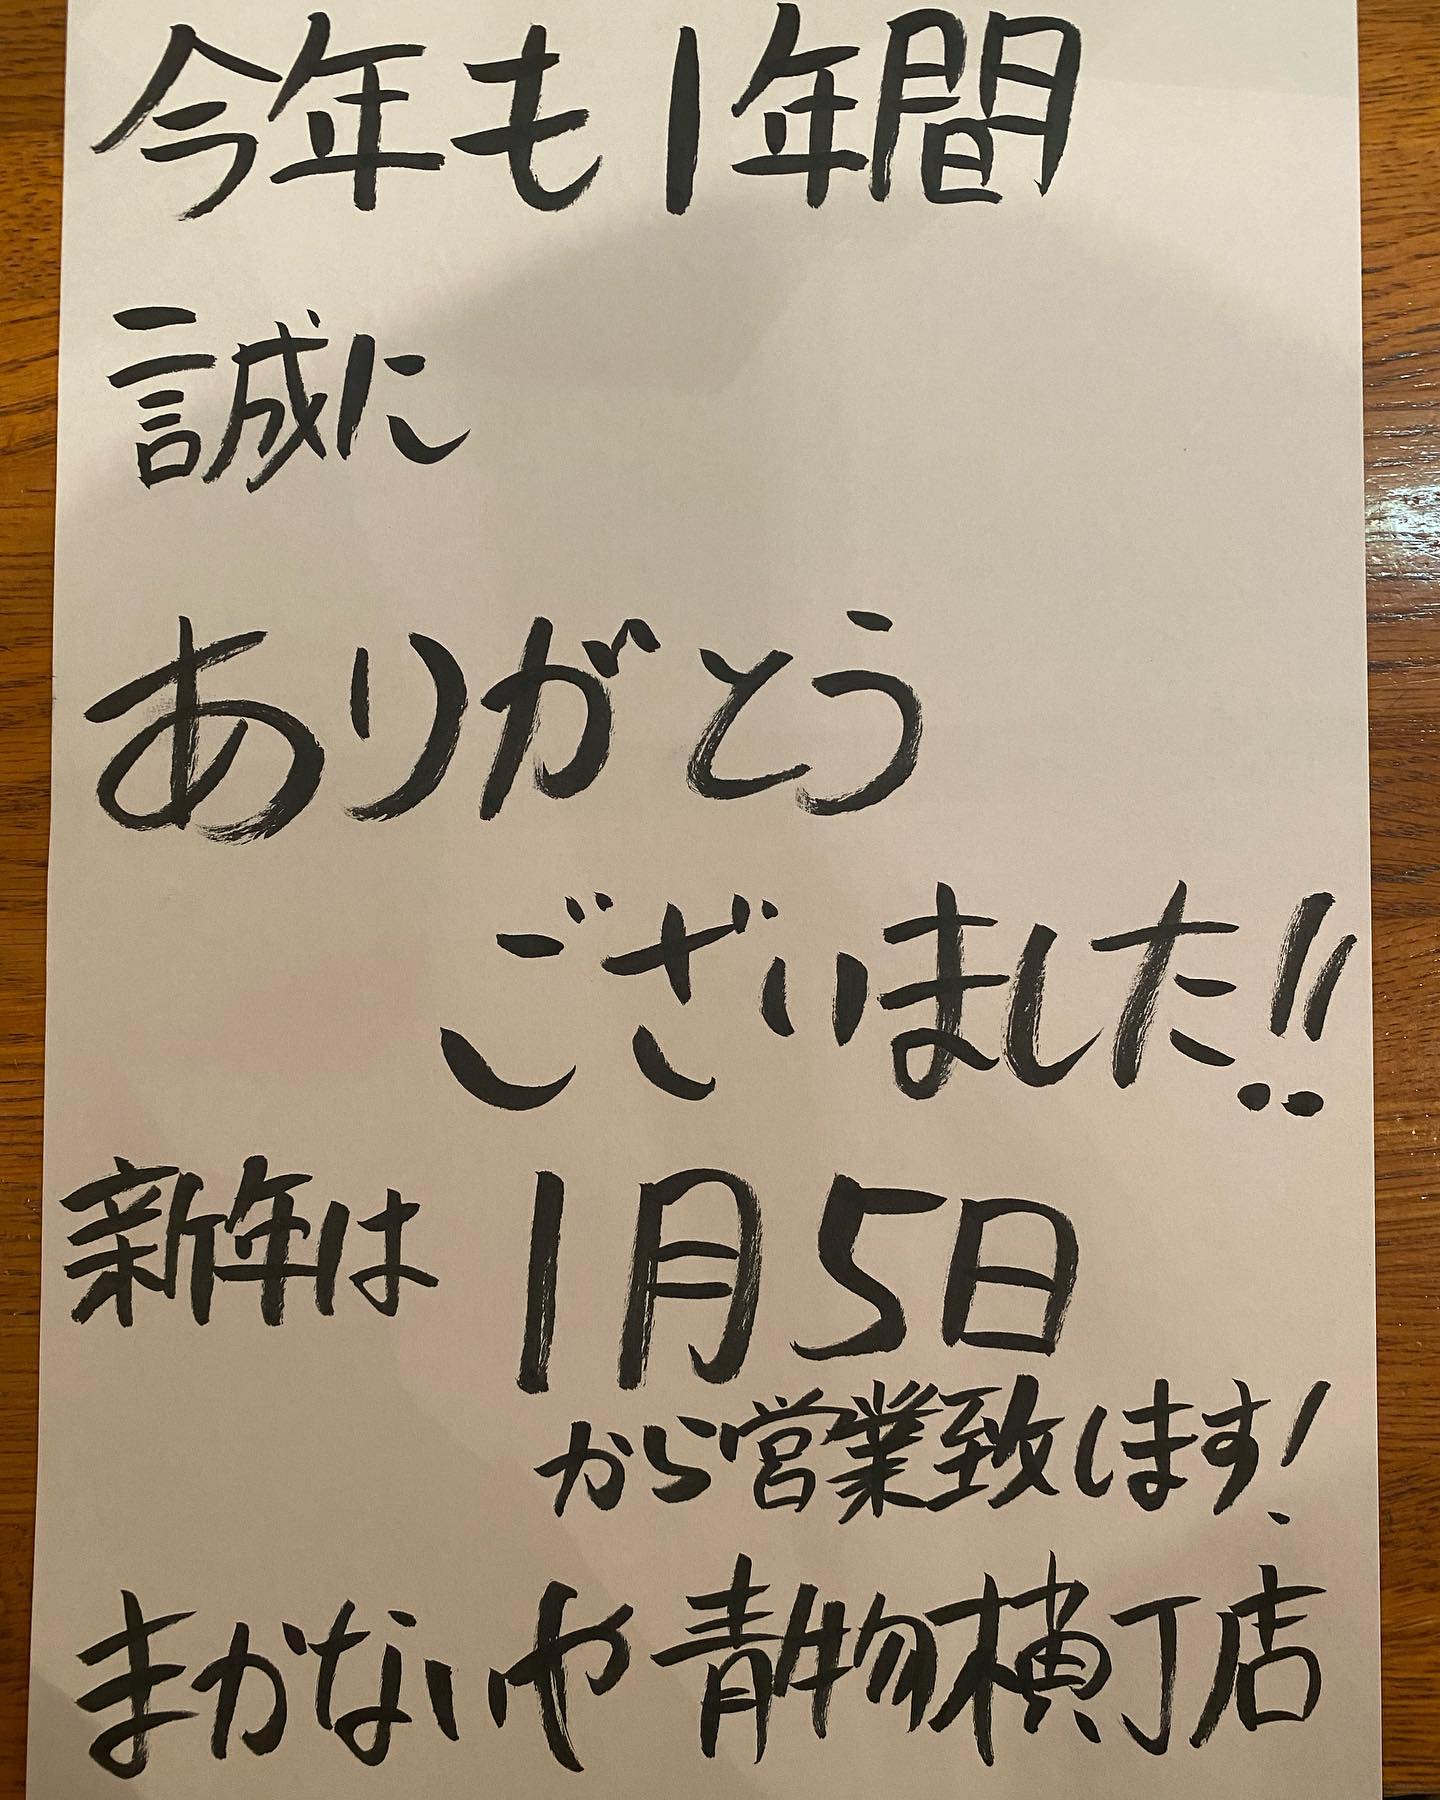 今年も1年間
誠に
ありがとう
ございました!!
新年は 1月5日
から営業致します!
まかないや 青物横丁店